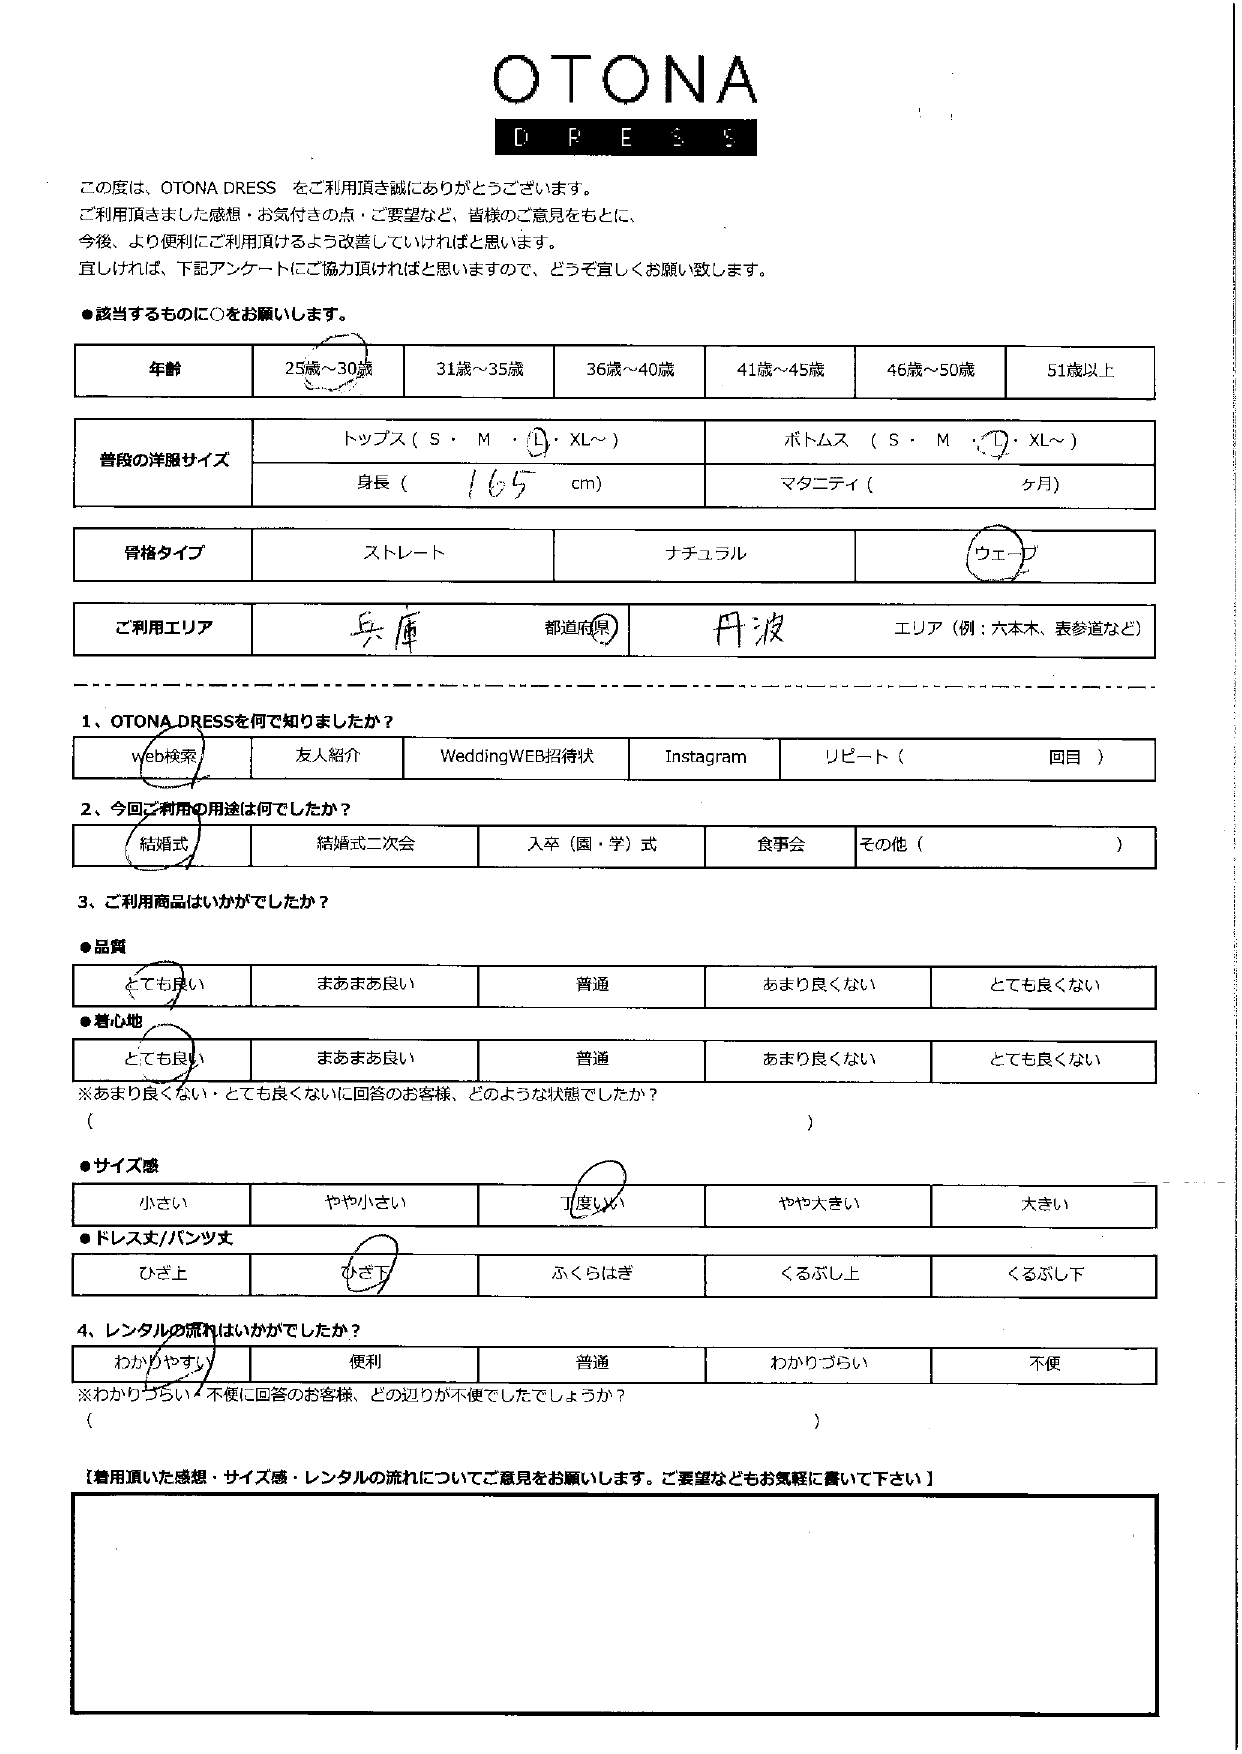 OTONA
DRESS
この度は、OTONA DRESS　をご利用頂き誠にありがとうございます。
ご利用頂きました感想・お気付きの点・ご要望など、皆様のご意見をもとに、
今後、より便利にご利用頂けるよう改善していければと思います。
宜しければ、下記アンケートにご協力頂ければと思いますので、どうぞ宜しくお願い致します。
●該当するものに○をお願いします。
年齢 25歳～30歳 31歳～35歳 36歳～40歳 41歳～45歳 46歳～50歳 51歳以上
普段の洋服サイズ トップス ( S ・ M ・ L ・ XL～ ) ボトムス ( S ・ M ・ L ・ XL～ )
身長 ( 165 cm) マタニティ ( ケ月)
骨格タイプ ストレート ナチュラル ウェーブ
ご利用エリア 兵庫 都道府県 丹波 エリア（例：六本木、表参道など）
1、OTONA DRESSを何で知りましたか？
web検索 友人紹介 WeddingWEB招待状 Instagram リピート（ 回目 ）
2、今回ご利用の用途は何でしたか？
結婚式 結婚式二次会 入卒（園・学）式 食事会 その他（ ）
3、ご利用商品はいかがでしたか？
●品質
とても良い まあまあ良い 普通 あまり良くない とても良くない
●着心地
とても良い まあまあ良い 普通 あまり良くない とても良くない
※あまり良くない・とても良くないに回答のお客様、どのような状態でしたか？
（ ）
●サイズ感
小さい やや小さい 丁度いい やや大きい 大きい
●ドレス丈/パンツ丈
ひざ上 ひざ下 ふくらはぎ くるぶし上 くるぶし下
4、レンタルの流れはいかがでしたか？
わかりやすい 便利 普通 わかりづらい 不便
※わかりづらい・不便に回答のお客様、どの辺りが不便でしたでしょうか？
（ ）
【着用頂いた感想・サイズ感・レンタルの流れについてご意見をお願いします。ご要望などもお気軽に書いて下さい 】